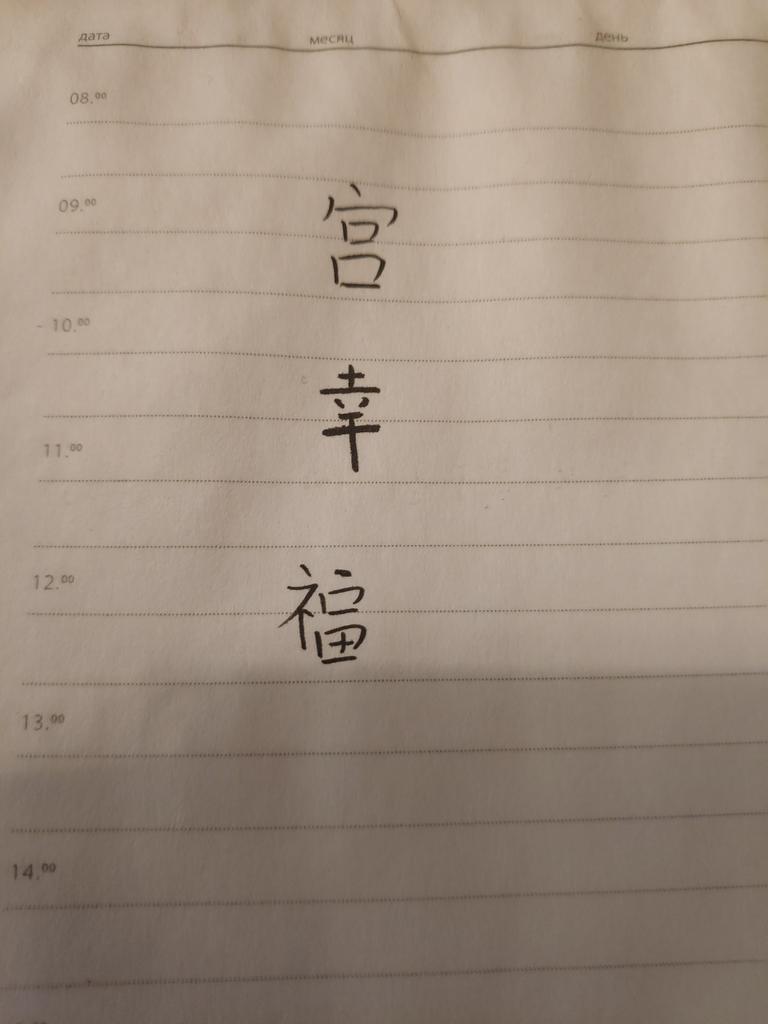 дата месяц день
08.⁰⁰
09.⁰⁰
宫
10.⁰⁰
幸
11.⁰⁰
12.⁰⁰
福
13.⁰⁰
14.⁰⁰